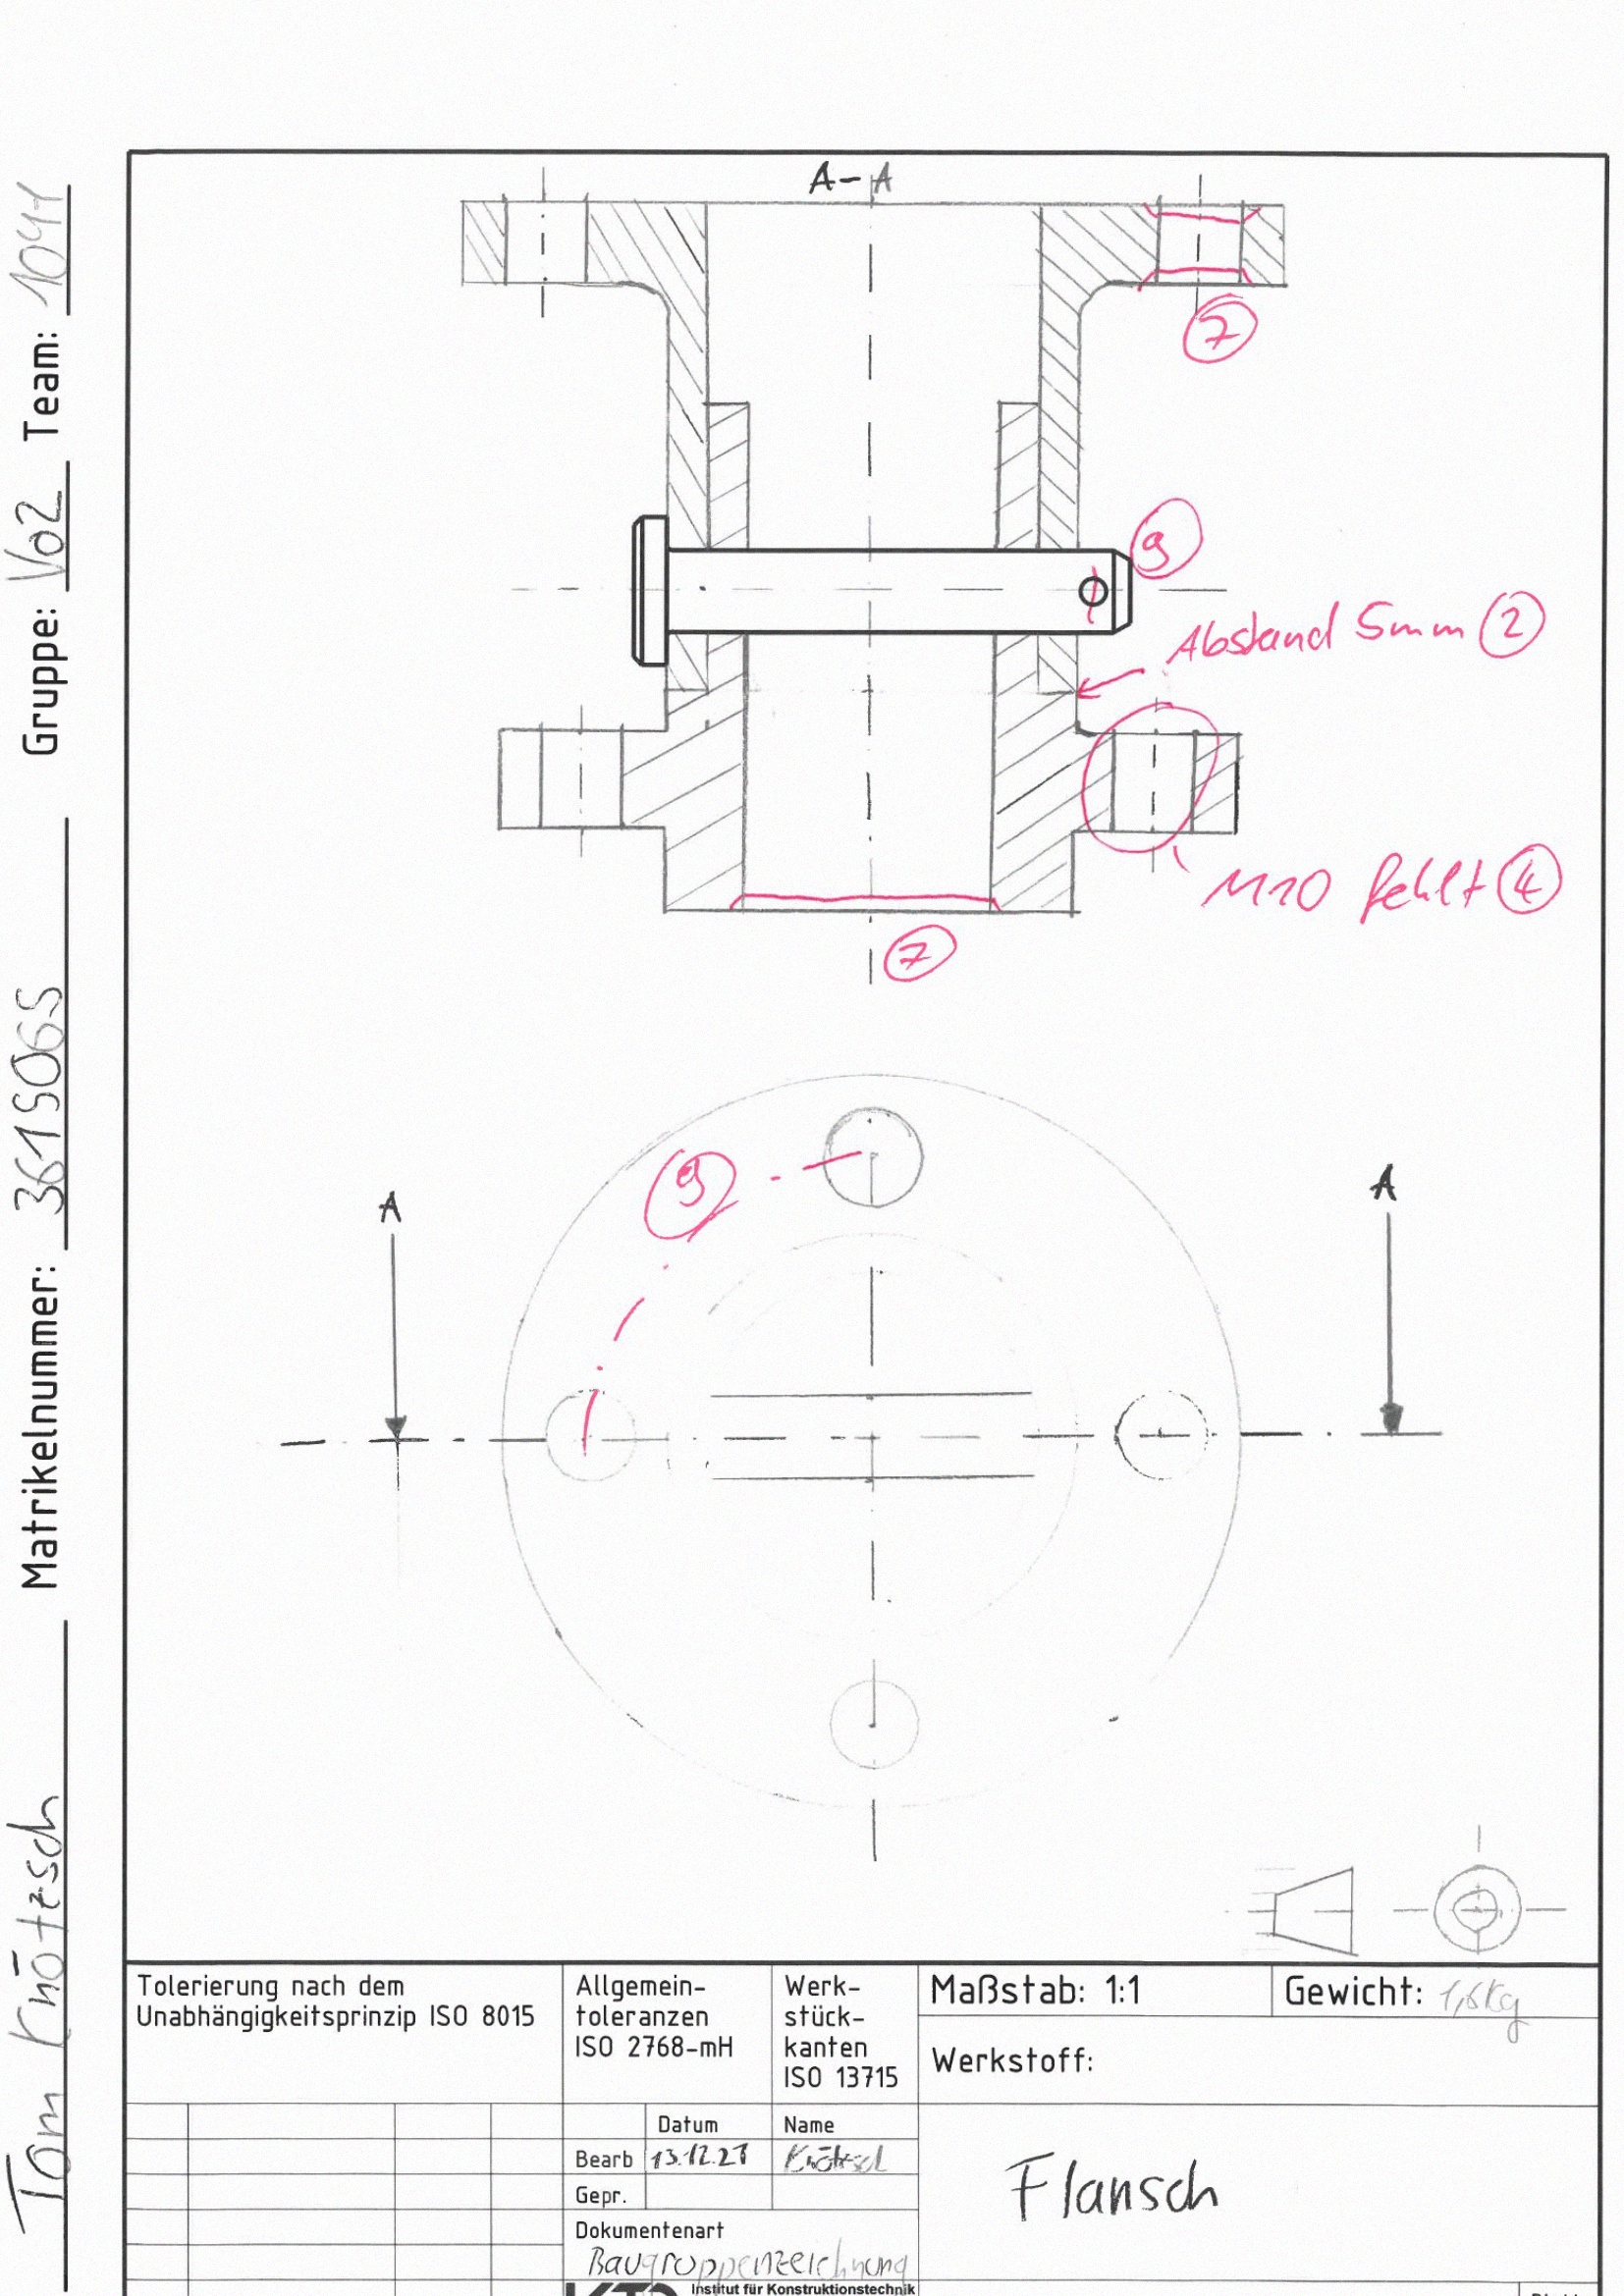 Tom Knötzsch Matrikelnummer: 3615065 Gruppe: Vo2 Team: 1041
A-A
7
9
Abstand 5mm 2
M10 fehlt 4
7
9
A
A
Tolerierung nach dem
Unabhängigkeitsprinzip ISO 8015
Allgemein-
toleranzen
ISO 2768-mH
Werk-
stück-
kanten
ISO 13715
Maßstab: 1:1
Gewicht: 1,6Kg
Werkstoff:
Datum
Name
Bearb
Gepr.
Dokumentenart
Baugruppenzeichnung
Flansch
Institut für Konstruktionstechnik